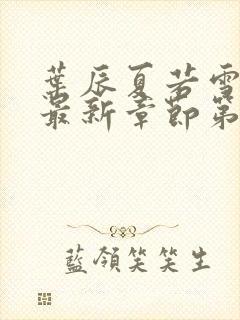 葉辰夏若雪
最新章節第
藍領笑笑生